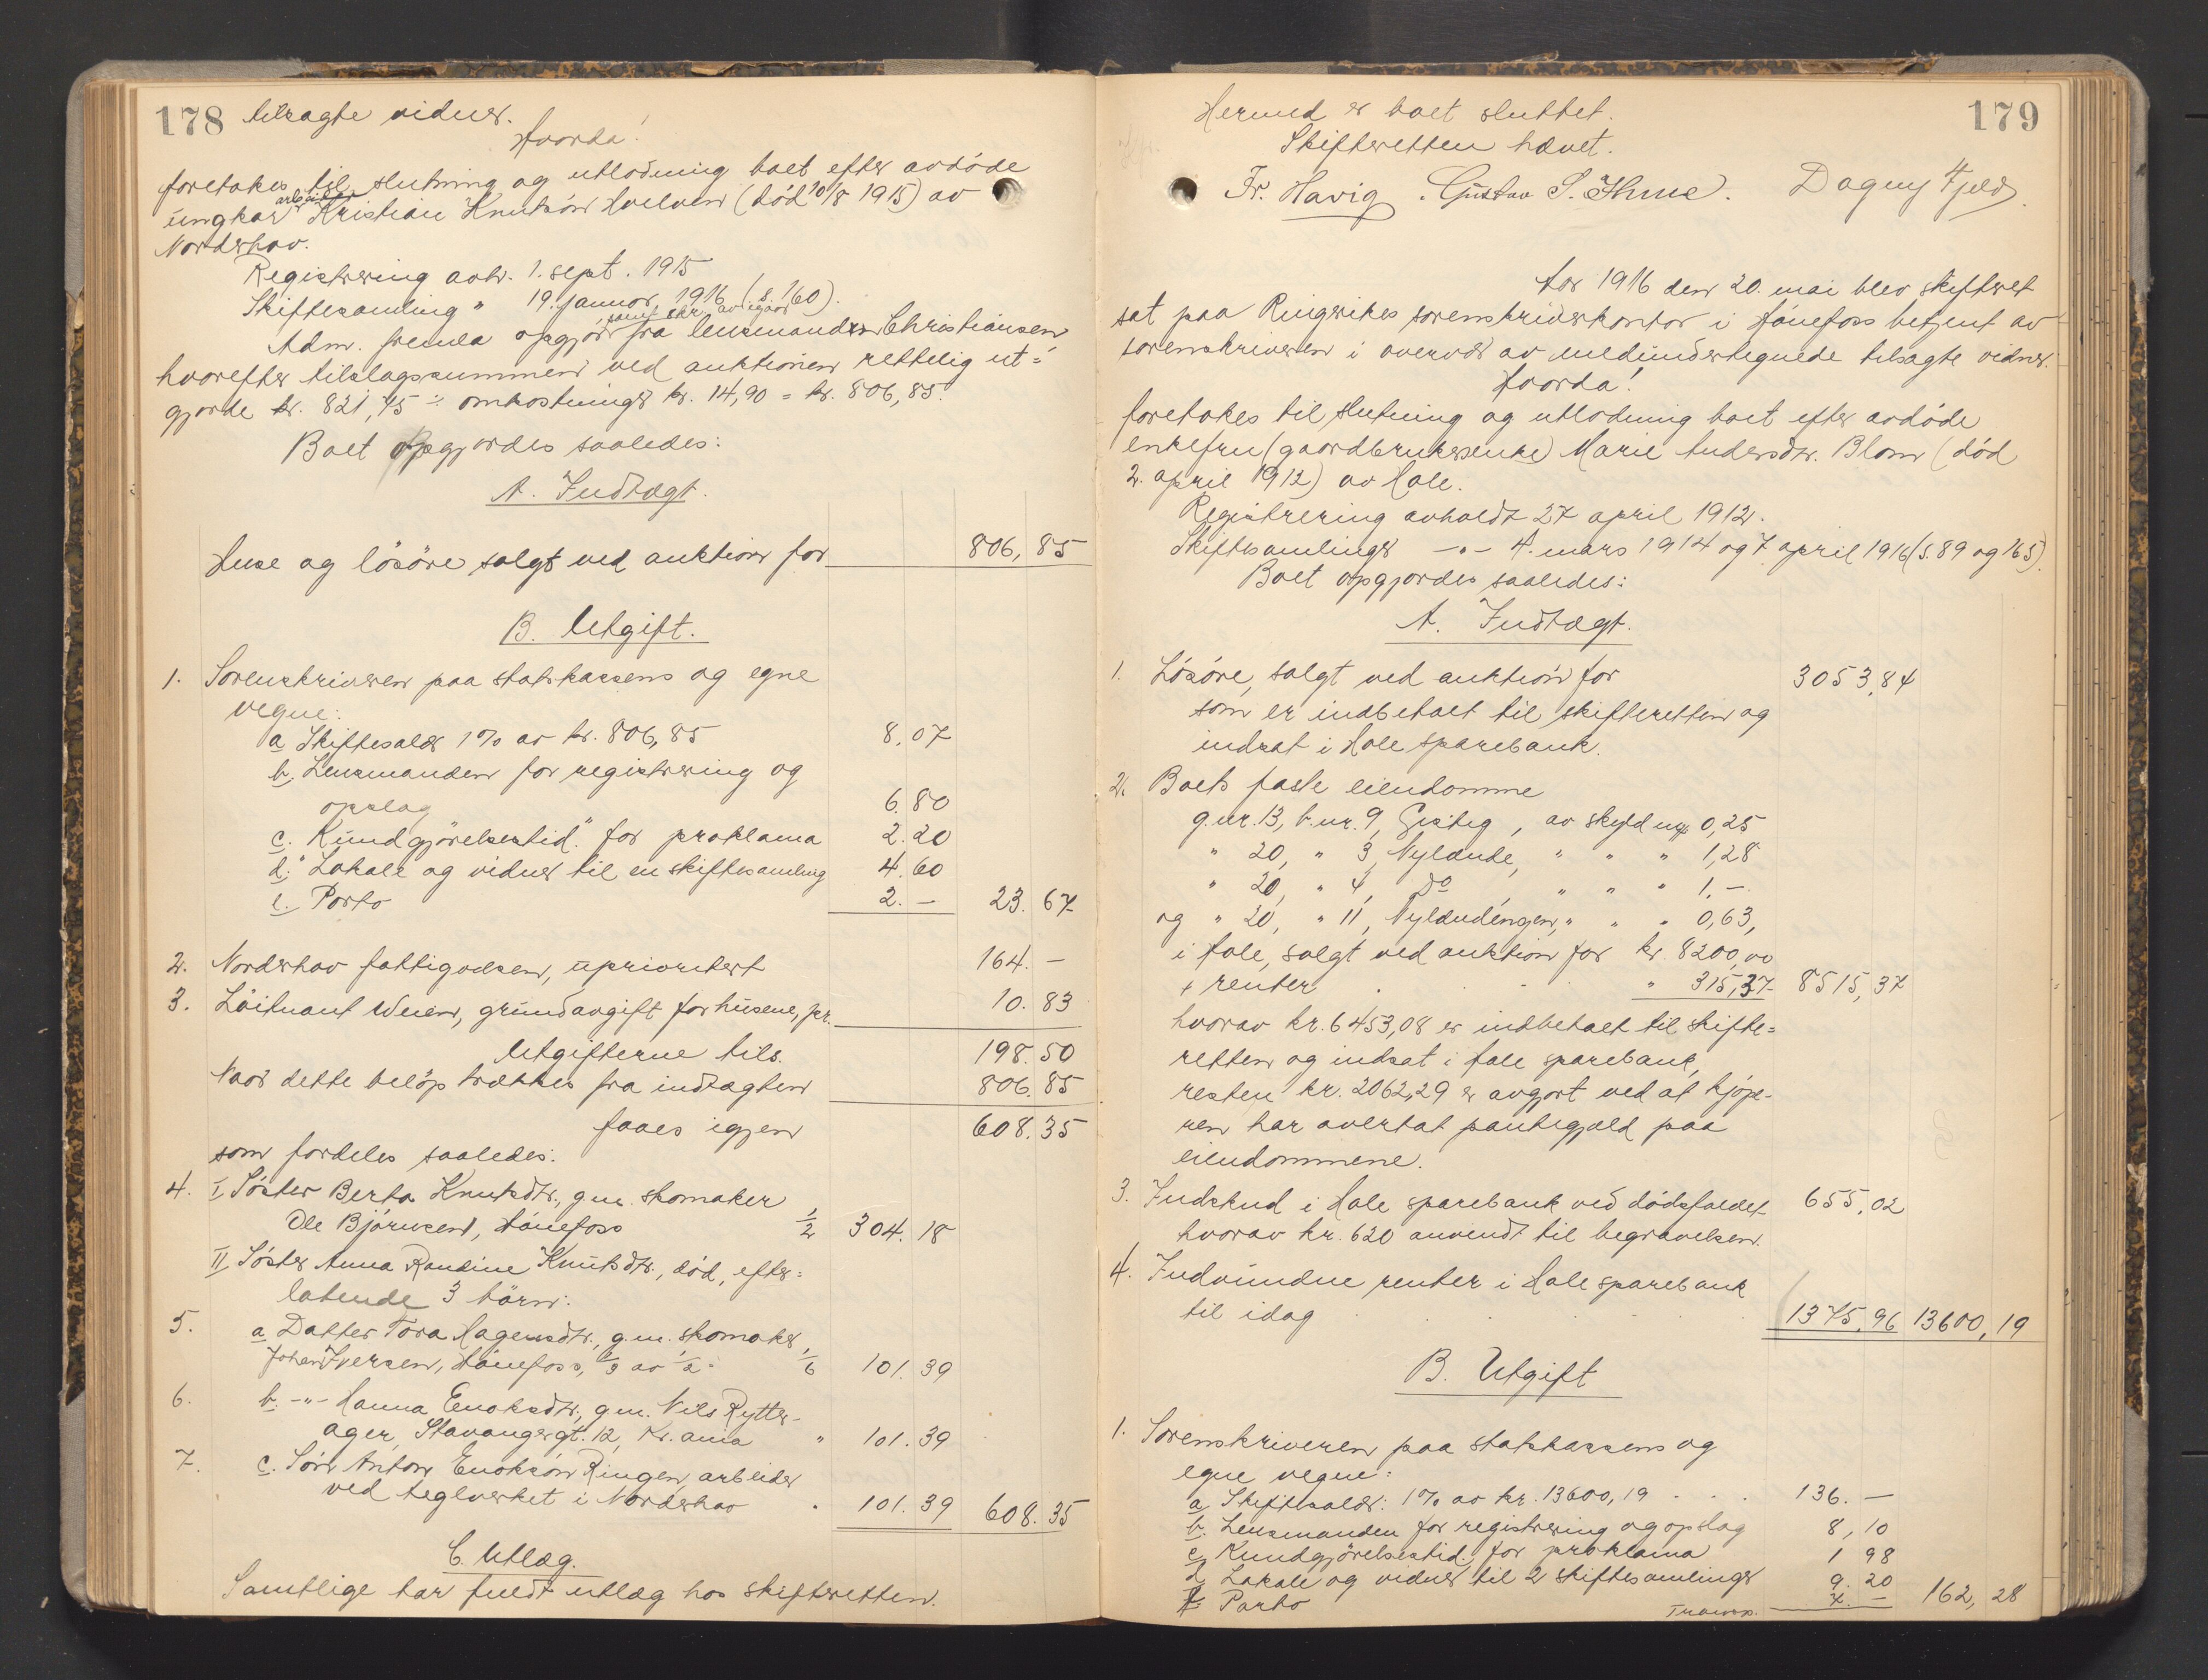 178 tilsagte vidner.
Hvorda!
foretokes til slutning og utlodning boet efter avdöde
ungkar arbeider Kristian Knutsön Hvelven (död 10/8 1915) av
Norderhov.
Registrering avh. 1. sept. 1915
Skiftesamling " 19. januar 1916 (s. 160).
Adm. fremla opgjör samt skr. av igaar fra lensmanden Christiansen
hvorefter tilslagssummen ved auktionen rettelig ut=
gjorde kr. 821,75 ÷ omkostninger kr. 14,90 = kr. 806,85.
Boet opgjordes saaledes:
A. Indtægt.
Huse og lösöre solgt ved auktion for 806,85
B. Utgift.
1. Sorenskriveren paa statskassens og egne
vegne:
a Skiftesalær 1% av kr. 806,85 8.07
b. Lensmanden for registrering og
opslag 6.80
c. "Kundgjörelsestid." for proklama 2.20
d. Lokale og vidner til en skiftesamling 4.60
e. Porto 2.- 23.67
2. Norderhov fattigvæsen, uprioritert 164.-
3. Löitnant Weien, grundavgift for husene, pr. 10.83
Utgifterne tils. 198.50
Naar dette belöp trækkes fra indtægten 806.85
faaes igjen 608.35
som fordeles saaledes:
4. I Söster Berta Knutsdtr., g.m. skomaker
Ole Björnsen, Hönefoss 1/2 304.18
II Söster Anna Randine Knutsdtr., död, efter=
latende 3 börn:
5. a Datter Tora Hagensdtr., g.m. skomaker
Johan Iversen, Hönefoss, 1/3 av 1/2 = 1/6 101.39
6. b. -"- Hanna Enoksdtr., g.m. Nils Rytter-
ager, Stavangergt. 12, Kr.ania " 101.39
7. c. Sön Anton Enoksön Ringen, arbeider
ved teglverket i Norderhov " 101.39 608.35
C. Utlæg.
Samtlige har fuldt utlæg hos skifteretten.
179
Hermed er boet sluttet.
Skifteretten hævet.
Fr. Havig. Gustav S. Ihme. Dagny Fjeld.
Aar 1916 den 20. mai blev skifteret
sat paa Ringerikes sorenskriverkontor i Hönefoss betjent av
sorenskriveren i overvær av medundertegnede tilsagte vidner.
Hvorda!
foretokes til slutning og utlodning boet efter avdöde
enkefru (gaardbrukerenke) Marie Andersdtr. Blom (död
2. april 1912) av Hole.
Registrering avholdt 27 april 1912.
Skiftesamlinger -"- 4. mars 1914 og 7 april 1916 (s. 89 og 165).
Boet opgjordes saaledes:
A. Indtægt.
1. Lösöre, solgt ved auktion for 3053,84
som er indbetalt til skifteretten og
indsat i Hole sparebank.
2. Boets faste eiendomme
g.nr. 13, b.nr. 9, Gisteig, av skyld mrk. 0,25
" 20, " 3, Nylænde, " " " 1,28
" 20, " 4, do, " " " 1,-
og " 20, " 11, Nylændengen, " " " 0,63,
i Hole, solgt ved auktion for kr. 8200,00
+ renter " 315,37 8515,37
hvorav kr. 6453,08 er indbetalt til skifte=
retten og indsat i Hole sparebank,
resten kr. 2062,29 er avgjort ved at kjöpe-
ren har overtat pantegjæld paa
eiendommene.
3. Indskud i Hole sparebank ved dödsfaldet 655,02
hvorav kr. 620 anvendt til begravelsen.
4. Indvundne renter i Hole sparebank
til idag 1375,96 13600,19
B. Utgift
1. Sorenskriveren paa statskassens og
egne vegne:
a Skiftesalær: 1% av kr. 13600,19 136.-
b. Lensmanden for registrering og opslag 8,10
c Kundgjörelsestid. for proklama 1 98
d Lokale og vidner til 2 skiftesamlinger 9.20
Porto 7.- 162,28
Transp.